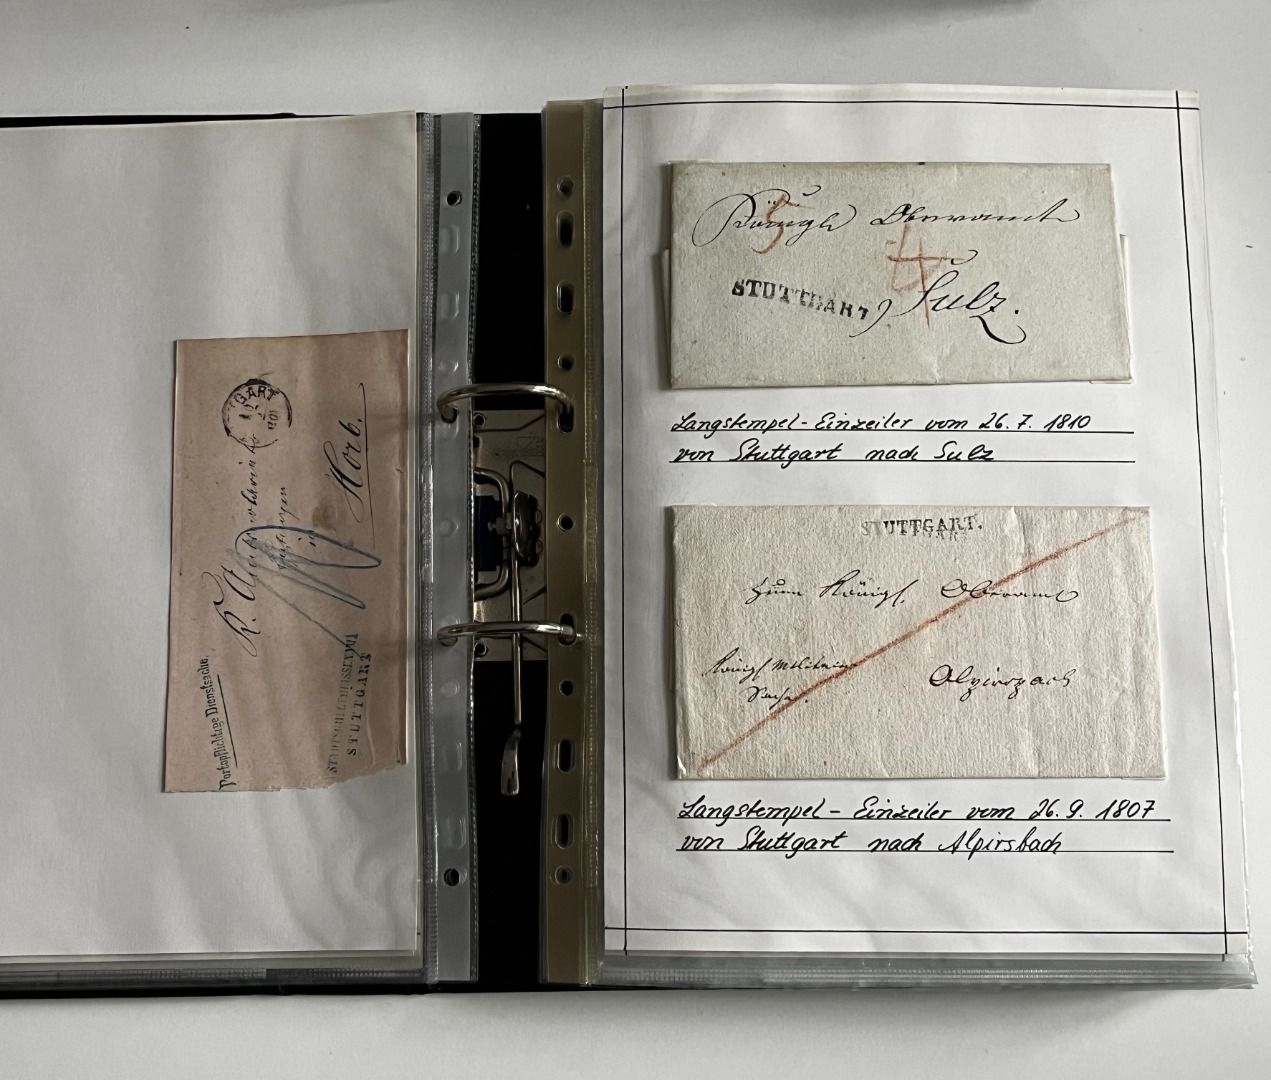 Portopflichtige Dienstsache.
K.
in
Horb.
STUTTGART
Königl Oberamt
5
4
Sulz.
STUTTGART
Langstempel-Einzeiler vom 26. 7. 1810
von Stuttgart nach Sulz
STUTTGART.
Zum Königl. Oberamt
Königl Militair
Alpirspach
Langstempel-Einzeiler vom 26. 9. 1807
von Stuttgart nach Alpirsbach